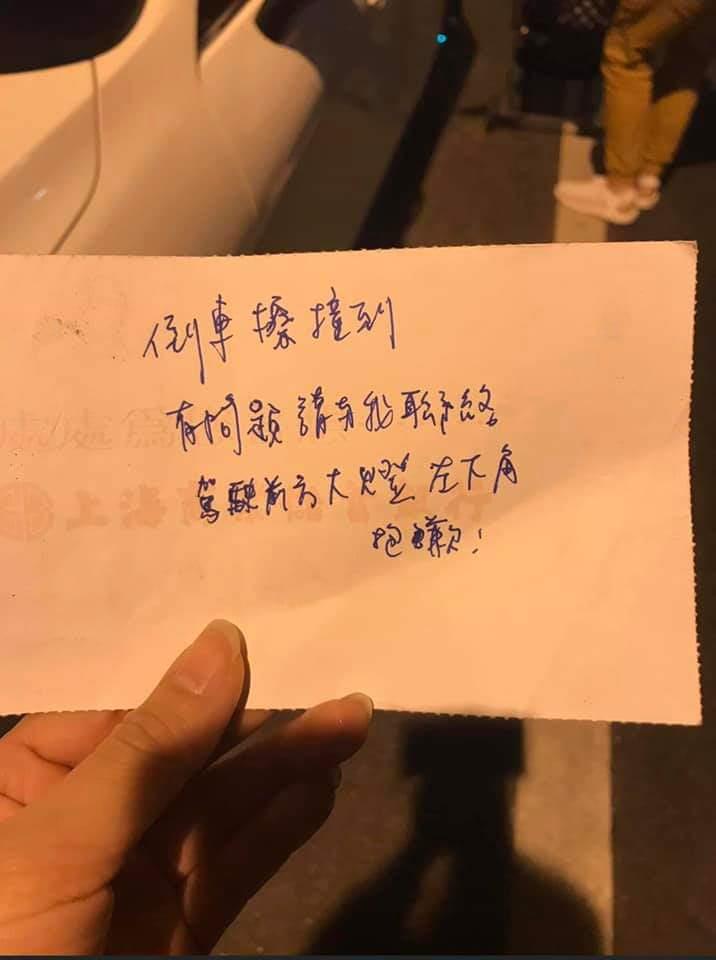 倒車擦撞到
有問題請與我聯絡
駕駛前方大燈左下角
抱歉！
處處為
上海商業儲蓄銀行